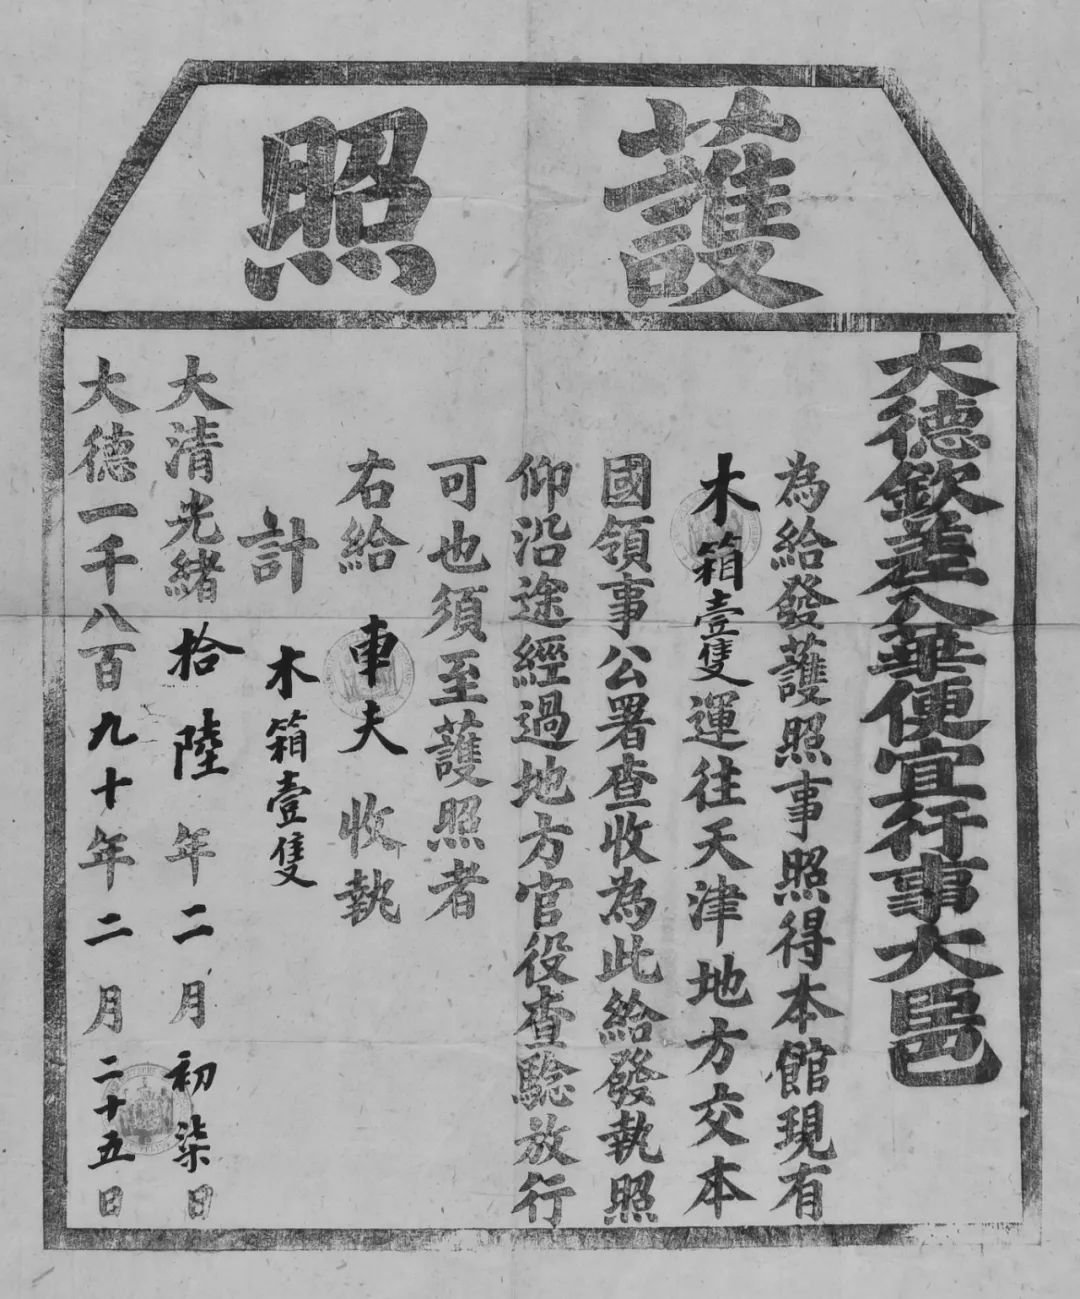 護照
大德欽差入華便宜行事大臣巴
為給發護照事照得本館現有
木箱壹隻運往天津地方交本
國領事公署查收為此給發執照
仰沿途經過地方官役查驗放行
可也須至護照者
右給 車夫 收執
計 木箱壹隻
大清光緒拾陸年二月初柒日
大德一千八百九十年二月二十五日